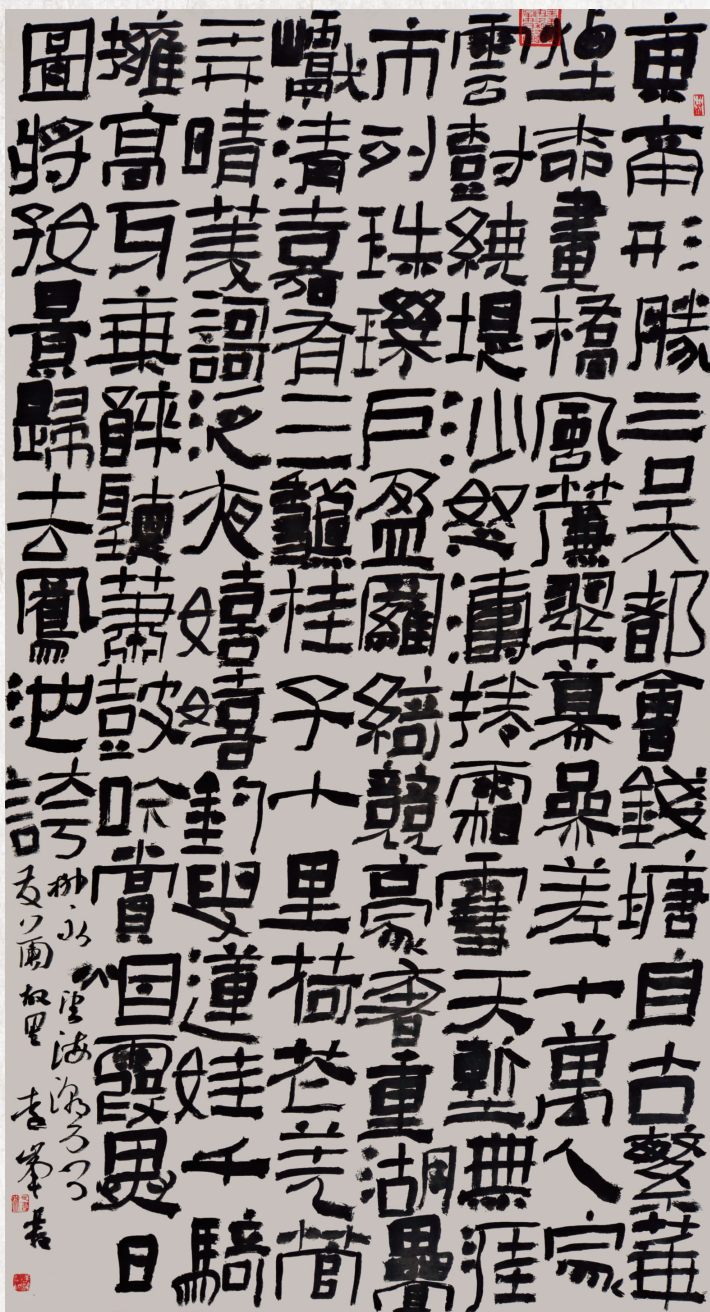 東南形勝三吳都會錢塘自古繁華
煙柳畫橋風簾翠幕參差十萬人家
雲樹繞堤沙怒濤捲霜雪天塹無涯
市列珠璣戶盈羅綺競豪奢重湖疊
巘清嘉有三龝桂子十里荷花羌管
弄晴菱謌泛夜嬉嬉釣叟蓮娃千騎
擁高牙乘醉聽簫鼓吟賞烟霞異日
圖將好景歸去鳳池誇
柳永望海潮
故里李書